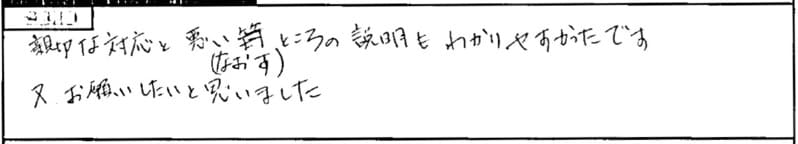 親切な対応と悪いところの説明もわかりやすかたです
(なおす)
又お願いしたいと思いました